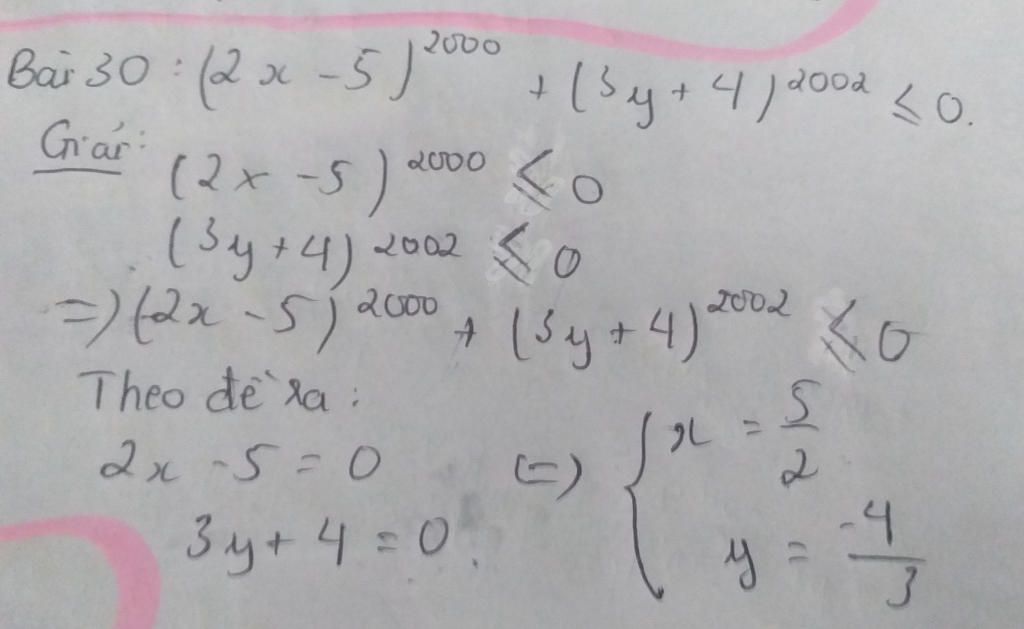 Bài 30 : (2x - 5)^2000 + (3y + 4)^2002 ≤ 0.
Giải:
(2x - 5)^2000 ≤ 0
(3y + 4)^2002 ≤ 0
=> (2x - 5)^2000 + (3y + 4)^2002 ≤ 0
Theo đề ra :
2x - 5 = 0 (=) { x = 5/2
3y + 4 = 0. y = -4/3